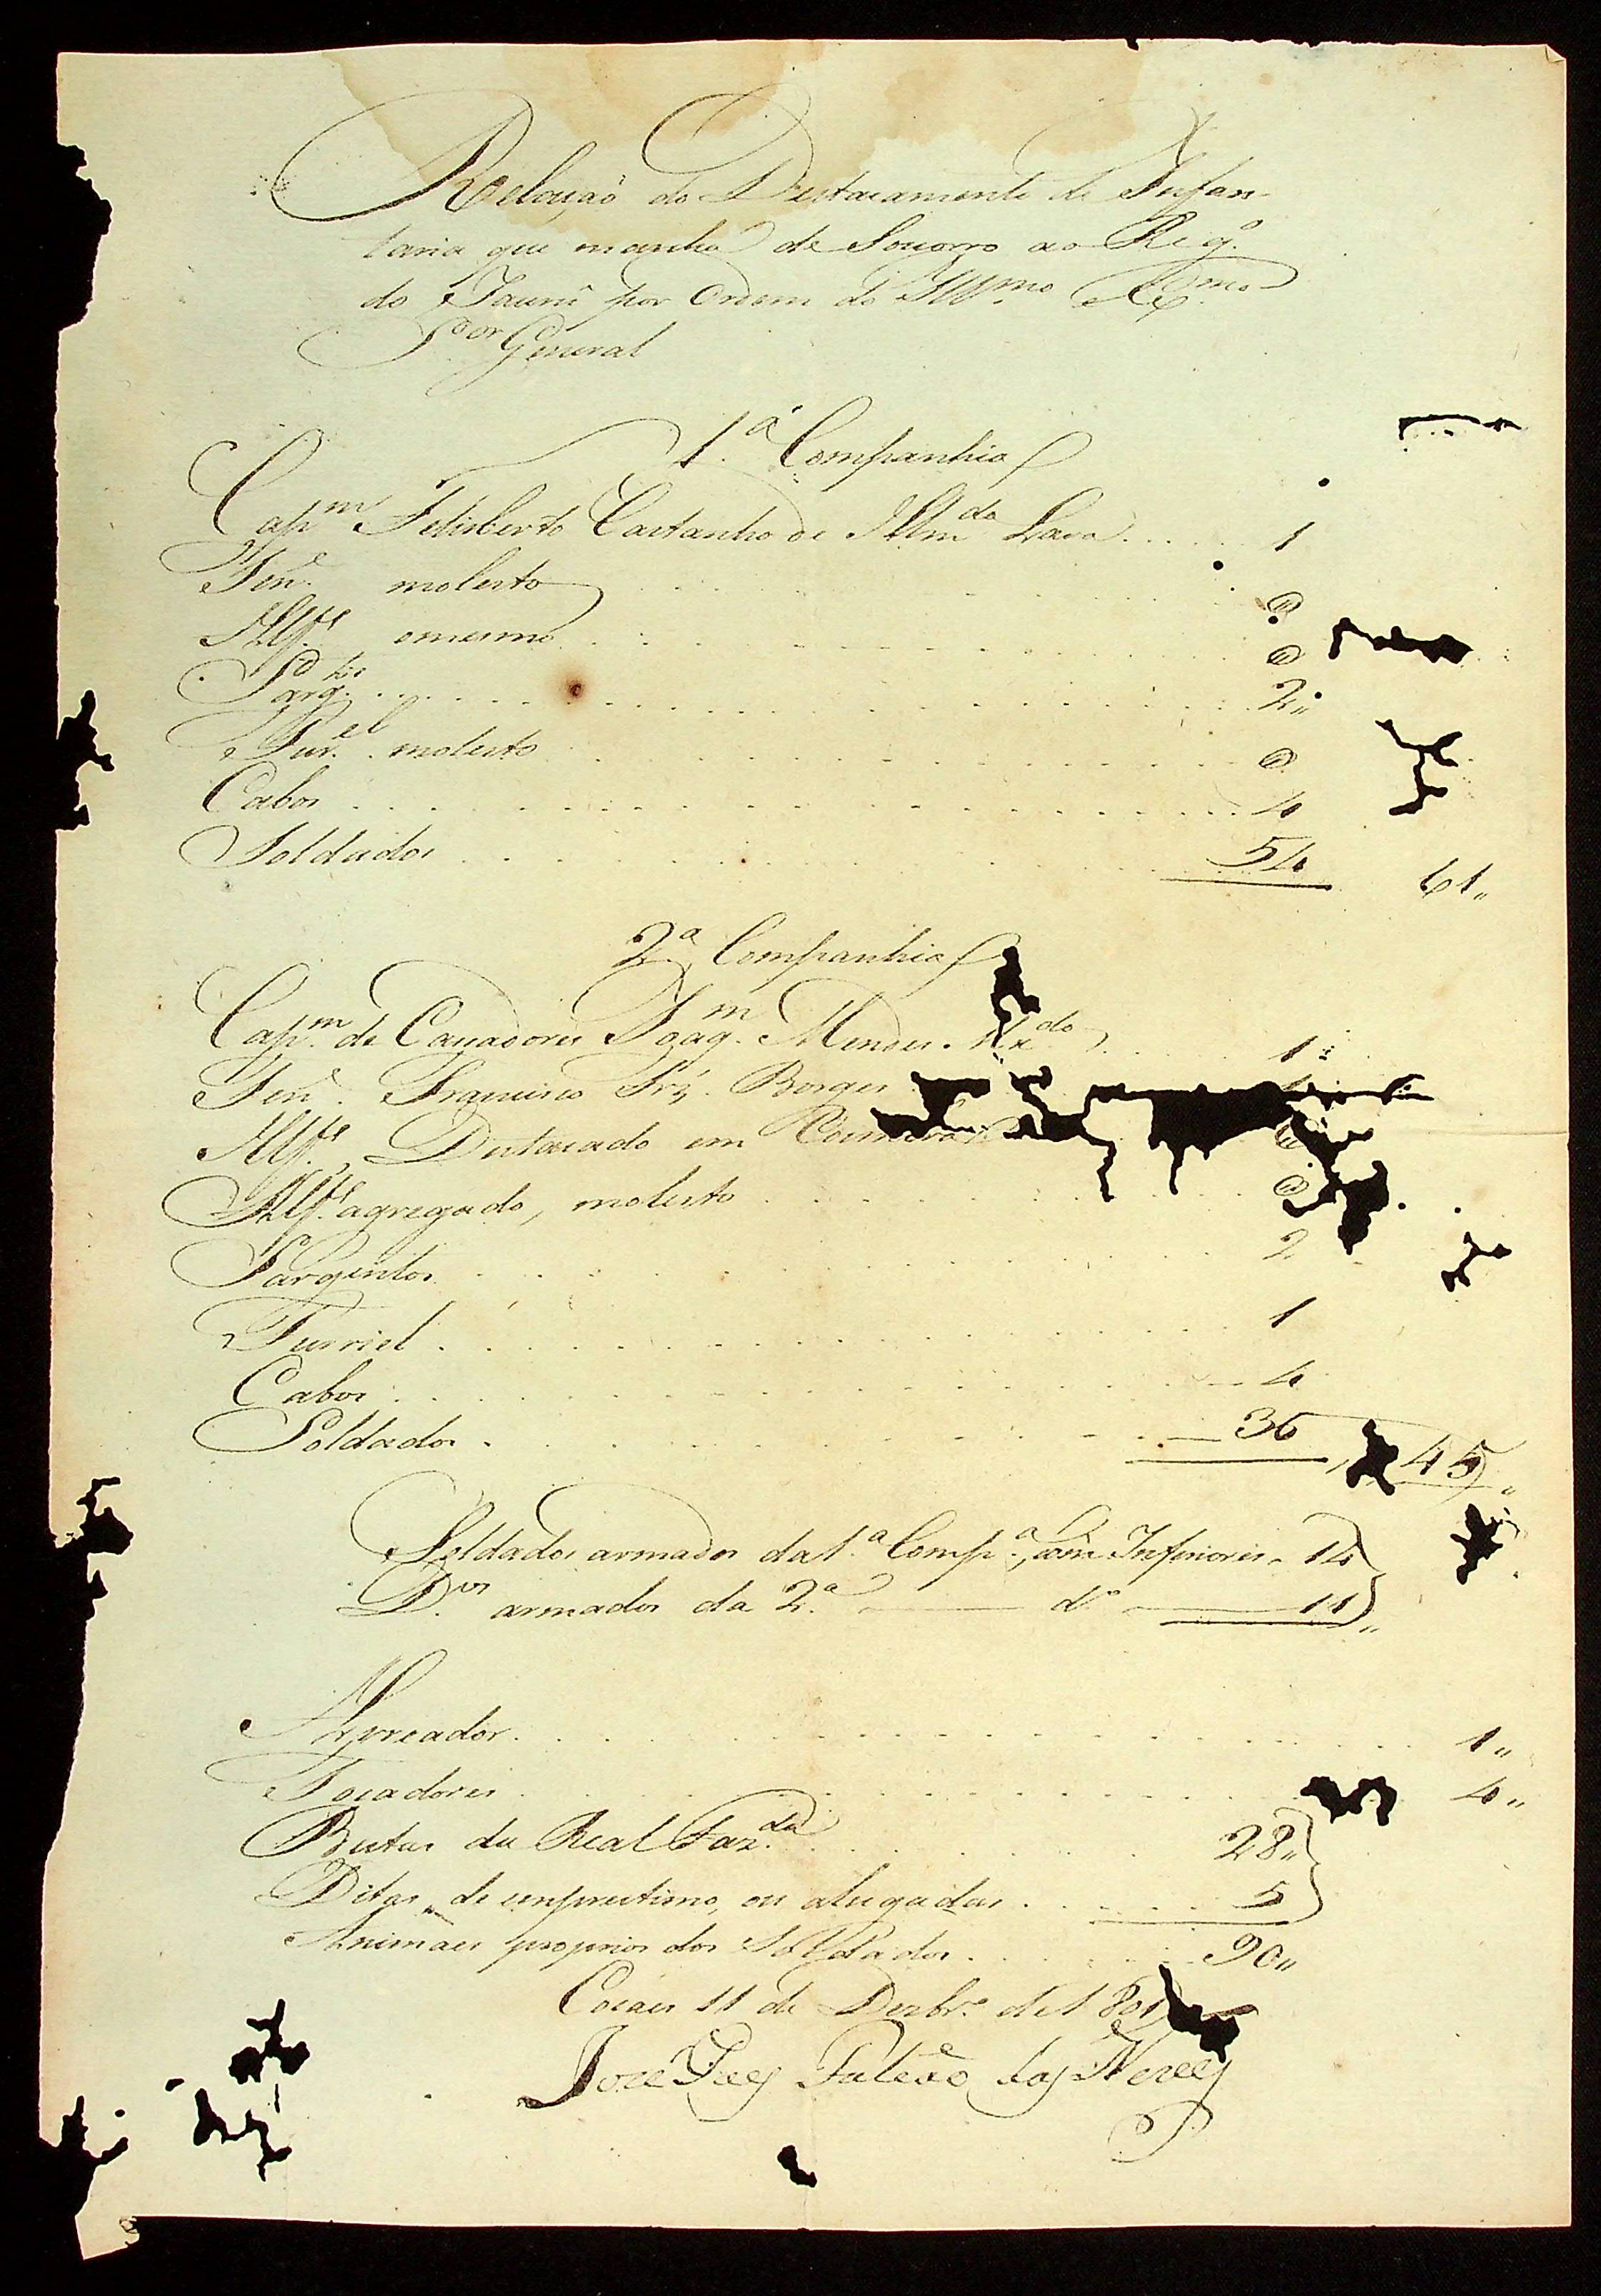 Relação do Destacamento de Infan-
taria que marcha de Socorro ao Reg.º
do Jaurú por Ordem do Illmo Exmo
Sor General
1.ª Companhia
Capm Felisberto Castanho de Almdo Lara . . . . . 1
Ten.e molesto . . . . . @
Alf.es omesmo . . . . . @
Sarg.tos . . . . . 2"
Fur.el molesto . . . . . @
Cabos . . . . . 4
Soldados . . . . . 54 61"
2.ª Companhia
Cap.m de Cassadores Joaq.m Mendes . . . . . 1
Ten.e Francisco Frz. Borges
Alf.es Destacado em Coimbra @
Alf.es agregado, molesto . . . . . @
Sargentos . . . . . 2
Furriel . . . . . 1
Cabos . . . . . 4
Soldados . . . . . 36 45"
Soldados armados da 1.ª Comp.ª, com Inferiores - 14
D.os armados da 2.ª — d.º — 11"
Arreador . . . . . 1"
Tocadores . . . . . 4"
Bestas da Real Faz.da . . . . . 28"
Ditas de emprestimo, ou alugadas . . . . . 5
Animaes proprios dos Soldados . . . . . 90"
Cocaes 11 de Dezbr.º de 1801
Joze Falcão das Neves